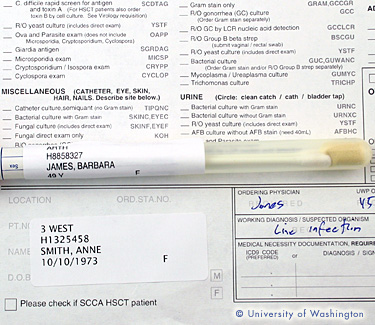 C. difficile rapid screen for antigen SCDTAG
and toxin A (For HSCT patients also order
toxin B by cell culture. See Virology requisition)
R/O yeast culture (includes direct exam) YSTF
Ova and Parasite exam (does not include OAPP
Microsporidia, Cryptosporidium, Cyclospora)
Giardia antigen SGRDAG
Microsporidia exam MICSP
Cryptosporidium / Isospora CRYPP
Cyclospora exam CYCLOP
MISCELLANEOUS (CATHETER, EYE, SKIN,
HAIR, NAILS. Describe site below.)
Catheter culture,semiquant (no Gram stain) TIPQNC
Bacterial culture with Gram stain SKINC,EYEC
Fungal culture (includes direct exam) SKINF,EYEF
Fungal direct exam only KOH
Gram stain only GRAM,GCCGR
R/O gonorrhea (GC) culture GC
(Order Gram stain separately)
R/O GC by LCR nucleic acid detection GCCLCR
R/O yeast culture (includes direct exam) YSTF
R/O Group B beta strep BSCGU
(submit vaginal / rectal swab)
Bacterial culture GUC,GUWANC
(Order Gram stain and/or R/O Group B strep separately)
Mycoplasma / Ureaplasma culture GUMYC
Trichomonas culture TRICHP
URINE (Circle: clean catch / cath / bladder tap)
Bacterial culture with Gram stain URNC
Bacterial culture without Gram stain URNXC
R/O yeast culture (includes direct exam) YSTF
AFB culture without AFB stain (need 40mL) AFBHC
H8858327
JAMES, BARBARA
49 Y F
LOCATION ORD.STA.NO.
PT.NO
D.O.B
M
F
3 WEST
H1325458
SMITH, ANNE
10/10/1973 F
Please check if SCCA HSCT patient
ORDERING PHYSICIAN UWP
Jones 45
WORKING DIAGNOSIS / SUSPECTED ORGANISM
Line infection
MEDICAL NECESSITY DOCUMENTATION, REQUIRED
ICD9 CODE or DIAGNOSIS / SIGN
(PREFERRED)
© University of Washington